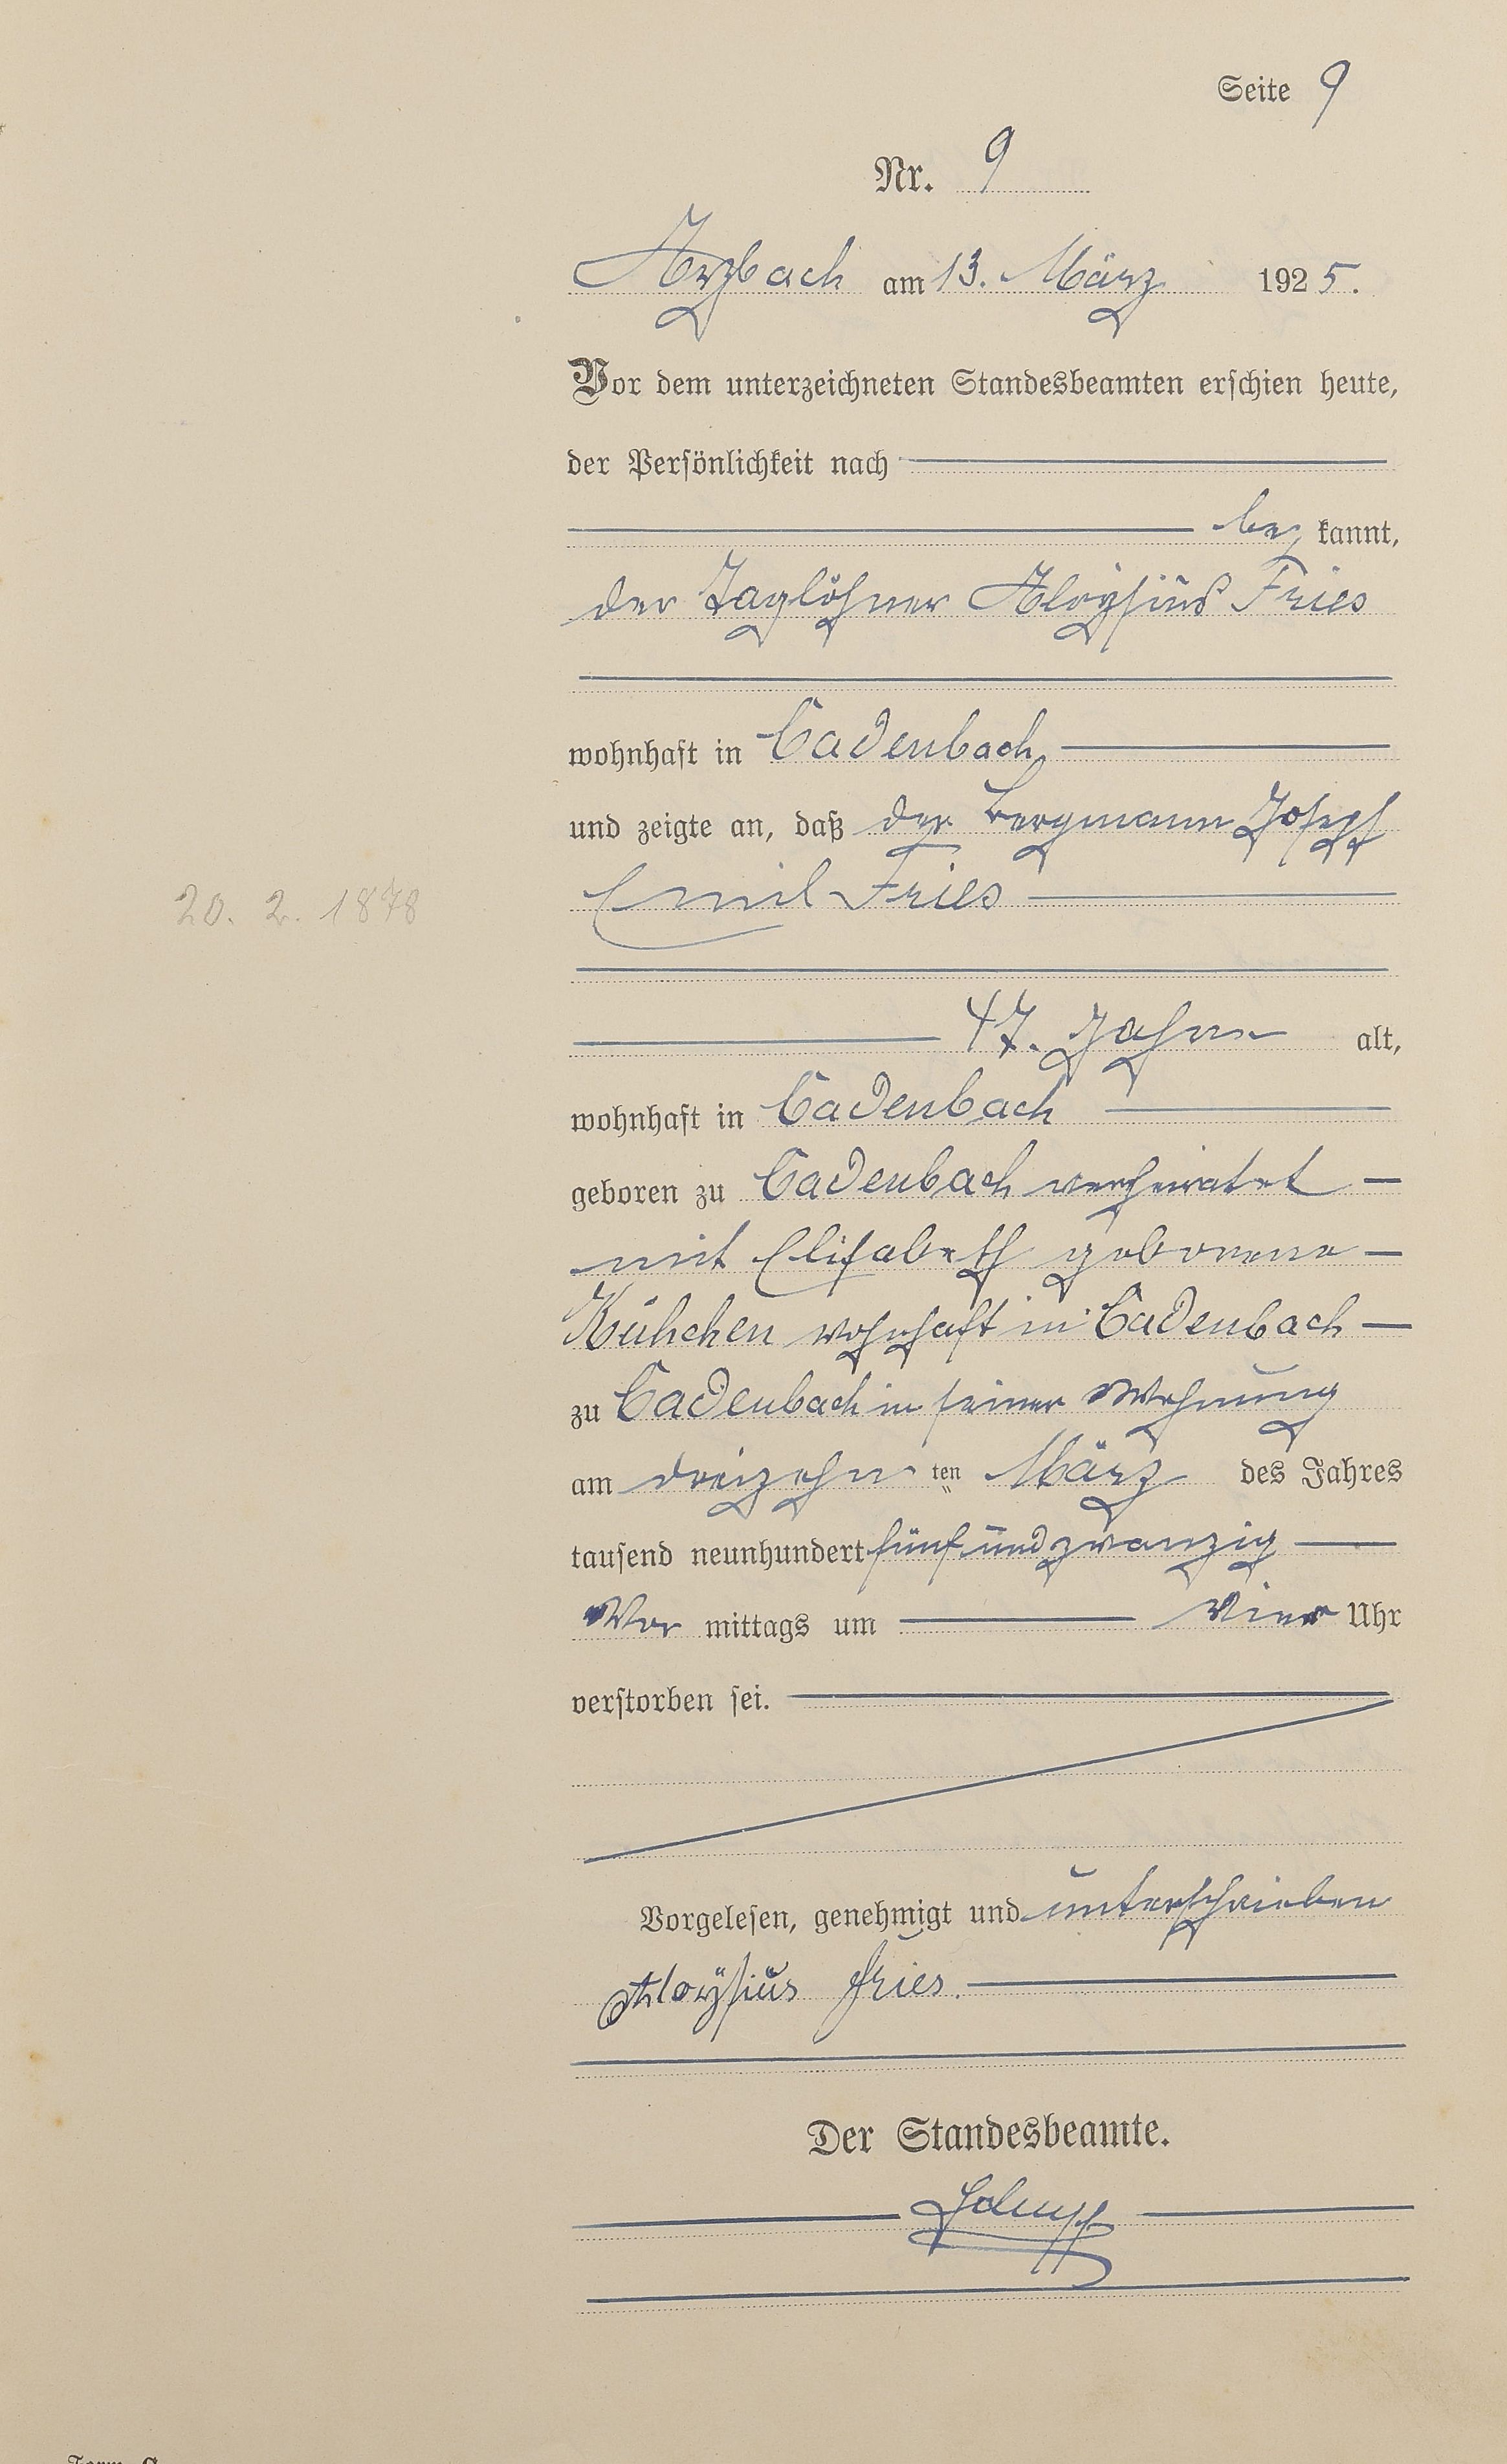 Seite 9
Nr. 9
Arzbach am 13. März 1925.
Vor dem unterzeichneten Standesbeamten erschien heute,
der Persönlichkeit nach
be kannt,
der Taglöhner Aloysius Fries
wohnhaft in Cadenbach
und zeigte an, daß der Bergmann Joseph
20. 2. 1878 Emil Fries
47. Jahre alt,
wohnhaft in Cadenbach
geboren zu Cadenbach verheiratet
mit Elisabeth geborene
Kühchen wohnhaft in Cadenbach
zu Cadenbach in seiner Wohnung
am dreizehn ten März des Jahres
tausend neunhundert fünf und zwanzig
Vor mittags um vier Uhr
verstorben sei.
Vorgelesen, genehmigt und unterschrieben
Aloysius Fries.
Der Standesbeamte.